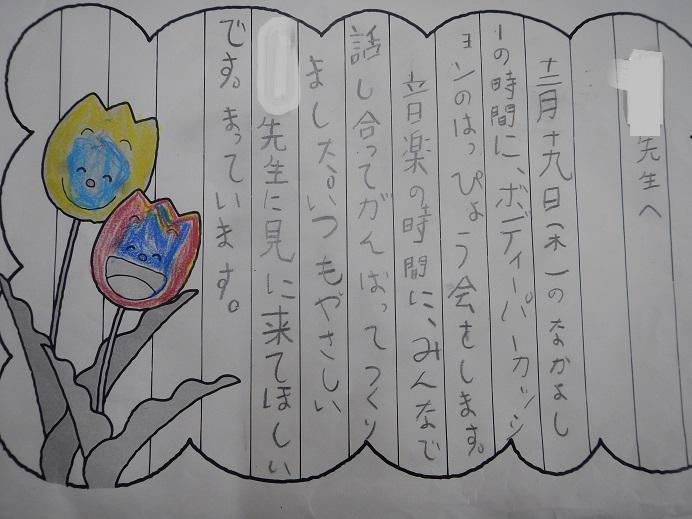 先生へ
十二月十九日(木)のなかよし
1の時間に、ボディーパーカッシ
ョンのはっぴょう会をします。
音楽の時間に、みんなで
話し合ってがんばってつくり
ました。いつもやさしい
先生に見に来てほしい
です。まっています。